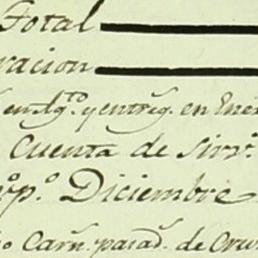 Total
racion
en lg.to y entreg. en Ene
Cuenta de Sirv.
º p.º Diciembre
º Carn. parad. de Cru